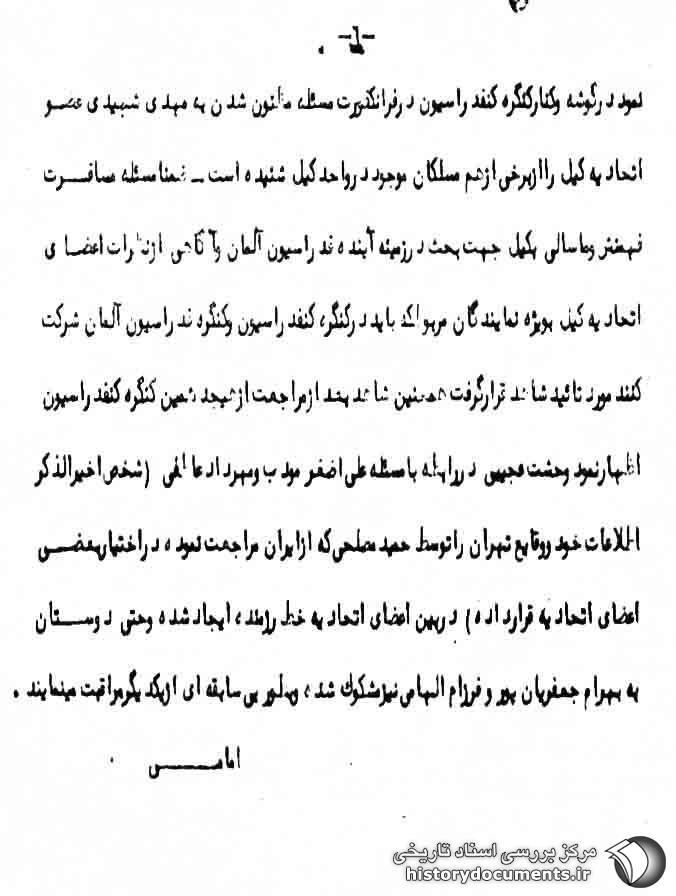 -٦-
نمود در گوشه وکنار کنگره کنفدراسیون در فرانکفورت مسئله مظنون شدن به مهدی شهیدی عضو
اتحادیه کیل را از برخی از هم مسلکان موجود در واحد کیل شنیده است ـ ضمنا مسئله مسافرت
وماسالی بکیل جهت بحث در زمینه آینده فدراسیون آلمان وآگاهی از نظرات اعضای
اتحادیه کیل بویژه نمایندگان مربوطه که باید در کنگره کنفدراسیون وکنگره فدراسیون آلمان شرکت
کنند مورد تائید شاهد قرار گرفت همچنین شاهد بعد از مراجعت از هیجدهمین کنگره کنفدراسیون
اظهار نمود وحشت عجیبی در رابطه با مسئله علی اصغر مودب ومهرداد عاطفی (شخص اخیرالذکر
اطلاعات خود ووقایع تهران را توسط حمید مصلحی که از ایران مراجعت نموده در اختیار بعضی
اعضای اتحادیه قرار داده) در بین اعضای اتحادیه خط رزمنده ایجاد شده وحتی دوستان
به بهرام جعفریان پور و فرزام الهامی نیز مشکوک شده وبطور بی سابقه ای از یکدیگر مراقبت مینمایند .
امامی
مرکز بررسی اسناد تاریخی
historydocuments.ir